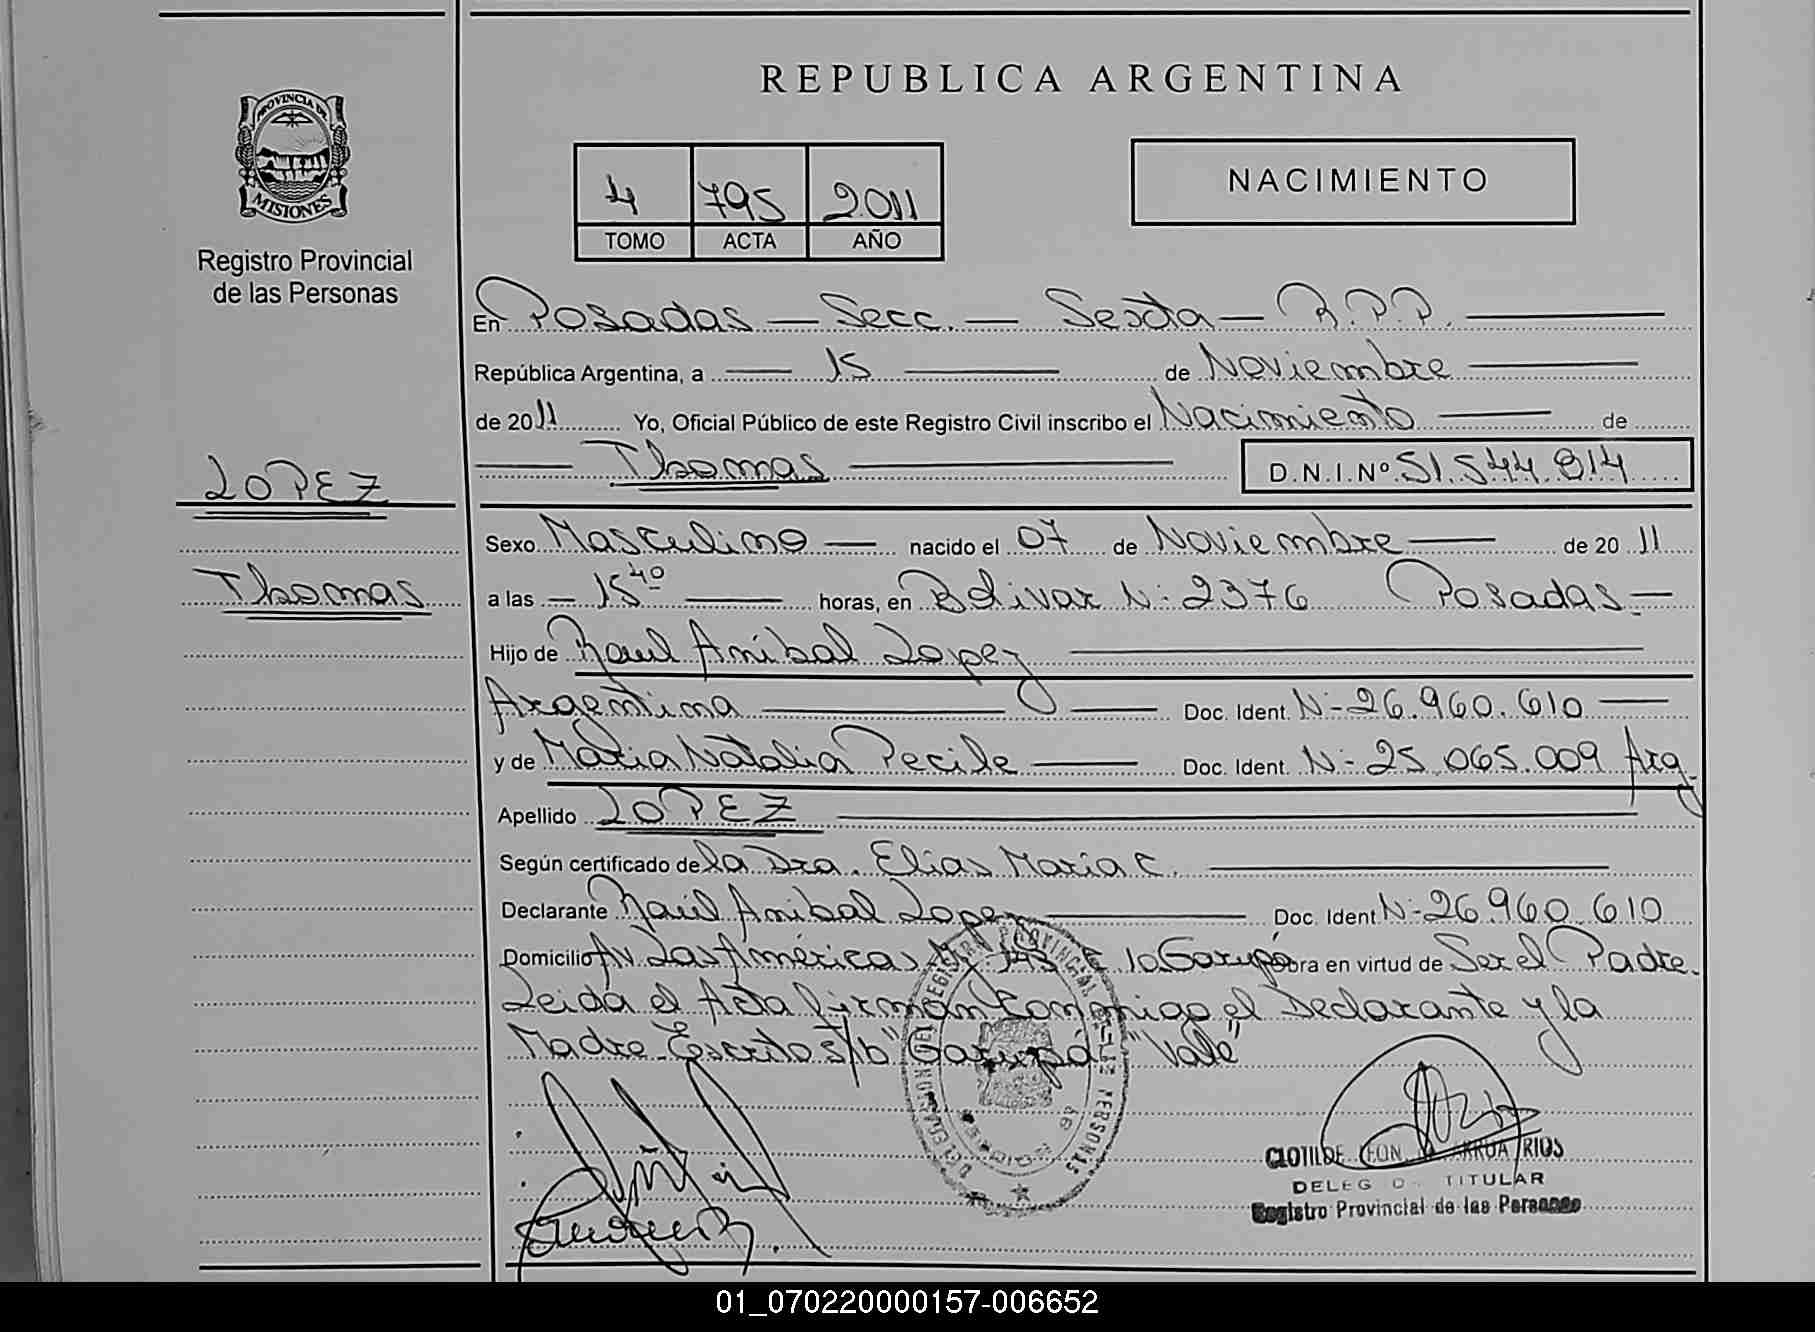 REPUBLICA ARGENTINA
PROVINCIA DE
MISIONES
Registro Provincial
de las Personas
4 795 2011
TOMO ACTA AÑO
NACIMIENTO
En Posadas — Secc. — Sexta — R.P.P.
República Argentina, a — 15 — de Noviembre
de 2011 Yo, Oficial Público de este Registro Civil inscribo el Nacimiento — de
— Thomas — D.N.I.Nº 51.544.814
LOPEZ
Thomas
Sexo Masculino — nacido el 07 de Noviembre — de 2011
a las — 15 40 — horas, en Bolivar Nº 2376 Posadas —
Hijo de Raul Aníbal Lopez
Argentina — Doc. Ident. Nº 26.960.610 —
y de Maria Natalia Pecile — Doc. Ident. Nº 25.065.009 Arg.
Apellido LOPEZ
Según certificado de la Dra. Elias Maria C.
Declarante Raúl Anibal Lopez — Doc. Ident Nº 26.960.610
Domicilio Av. Las Américas Garupá obra en virtud de Ser el Padre.
Leida el Acta firman conmigo el Declarante y la
Madre. Escrito s/b "Garupá" "Vale"
CLOTILDE RIOS
TITULAR
Registro Provincial de las Personas
01_070220000157-006652